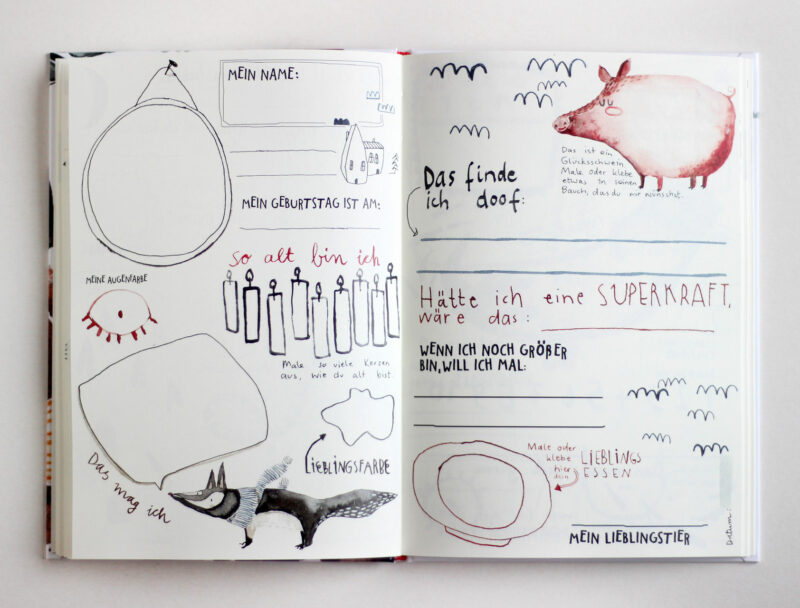 MEIN NAME:
MEIN GEBURTSTAG IST AM:
so alt bin ich
Male so viele Kerzen
aus, wie du alt bist.
MEINE AUGENFARBE
LIEBLINGSFARBE
Das mag ich
Das ist ein
Glücksschwein
Male oder klebe
etwas in seinen
Bauch, das du mir wünschst.
Das finde
ich doof:
Hätte ich eine SUPERKRAFT,
wäre das:
WENN ICH NOCH GRÖßER
BIN, WILL ICH MAL:
Male oder
klebe
hier
dein
LIEBLINGS
ESSEN
MEIN LIEBLINGSTIER
Datum: